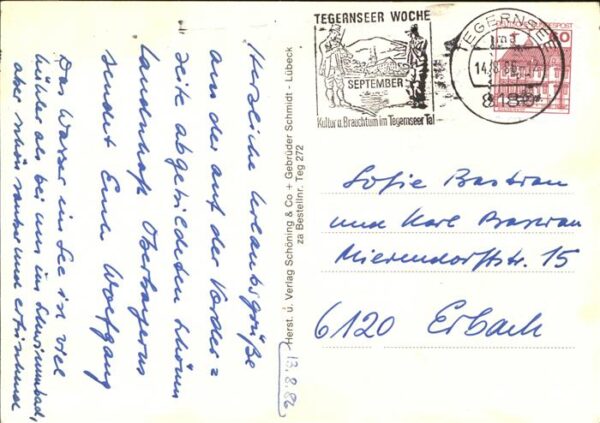 Herzliche Urlaubsgrüße
aus der auf der Vorder=
seite abgebildeten schönen
Landschaft Oberbayerns
sendet Euer Wolfgang
Das Wasser im See ist viel
kühler als bei uns im Schwimmbad,
aber schön sauber und erfrischend
13.8.86
Herst. u. Verlag Schöning & Co + Gebrüder Schmidt - Lübeck
za Bestellnr. Teg 272
TEGERNSEER WOCHE
SEPTEMBER
Kultur u. Brauchtum im Tegernseer Tal
TEGERNSEE
14.8.86
8180
DEUTSCHE BUNDESPOST
60
Sofie Bastian
und Karl Bastian
Mierendorffstr. 15
6120 Erbach